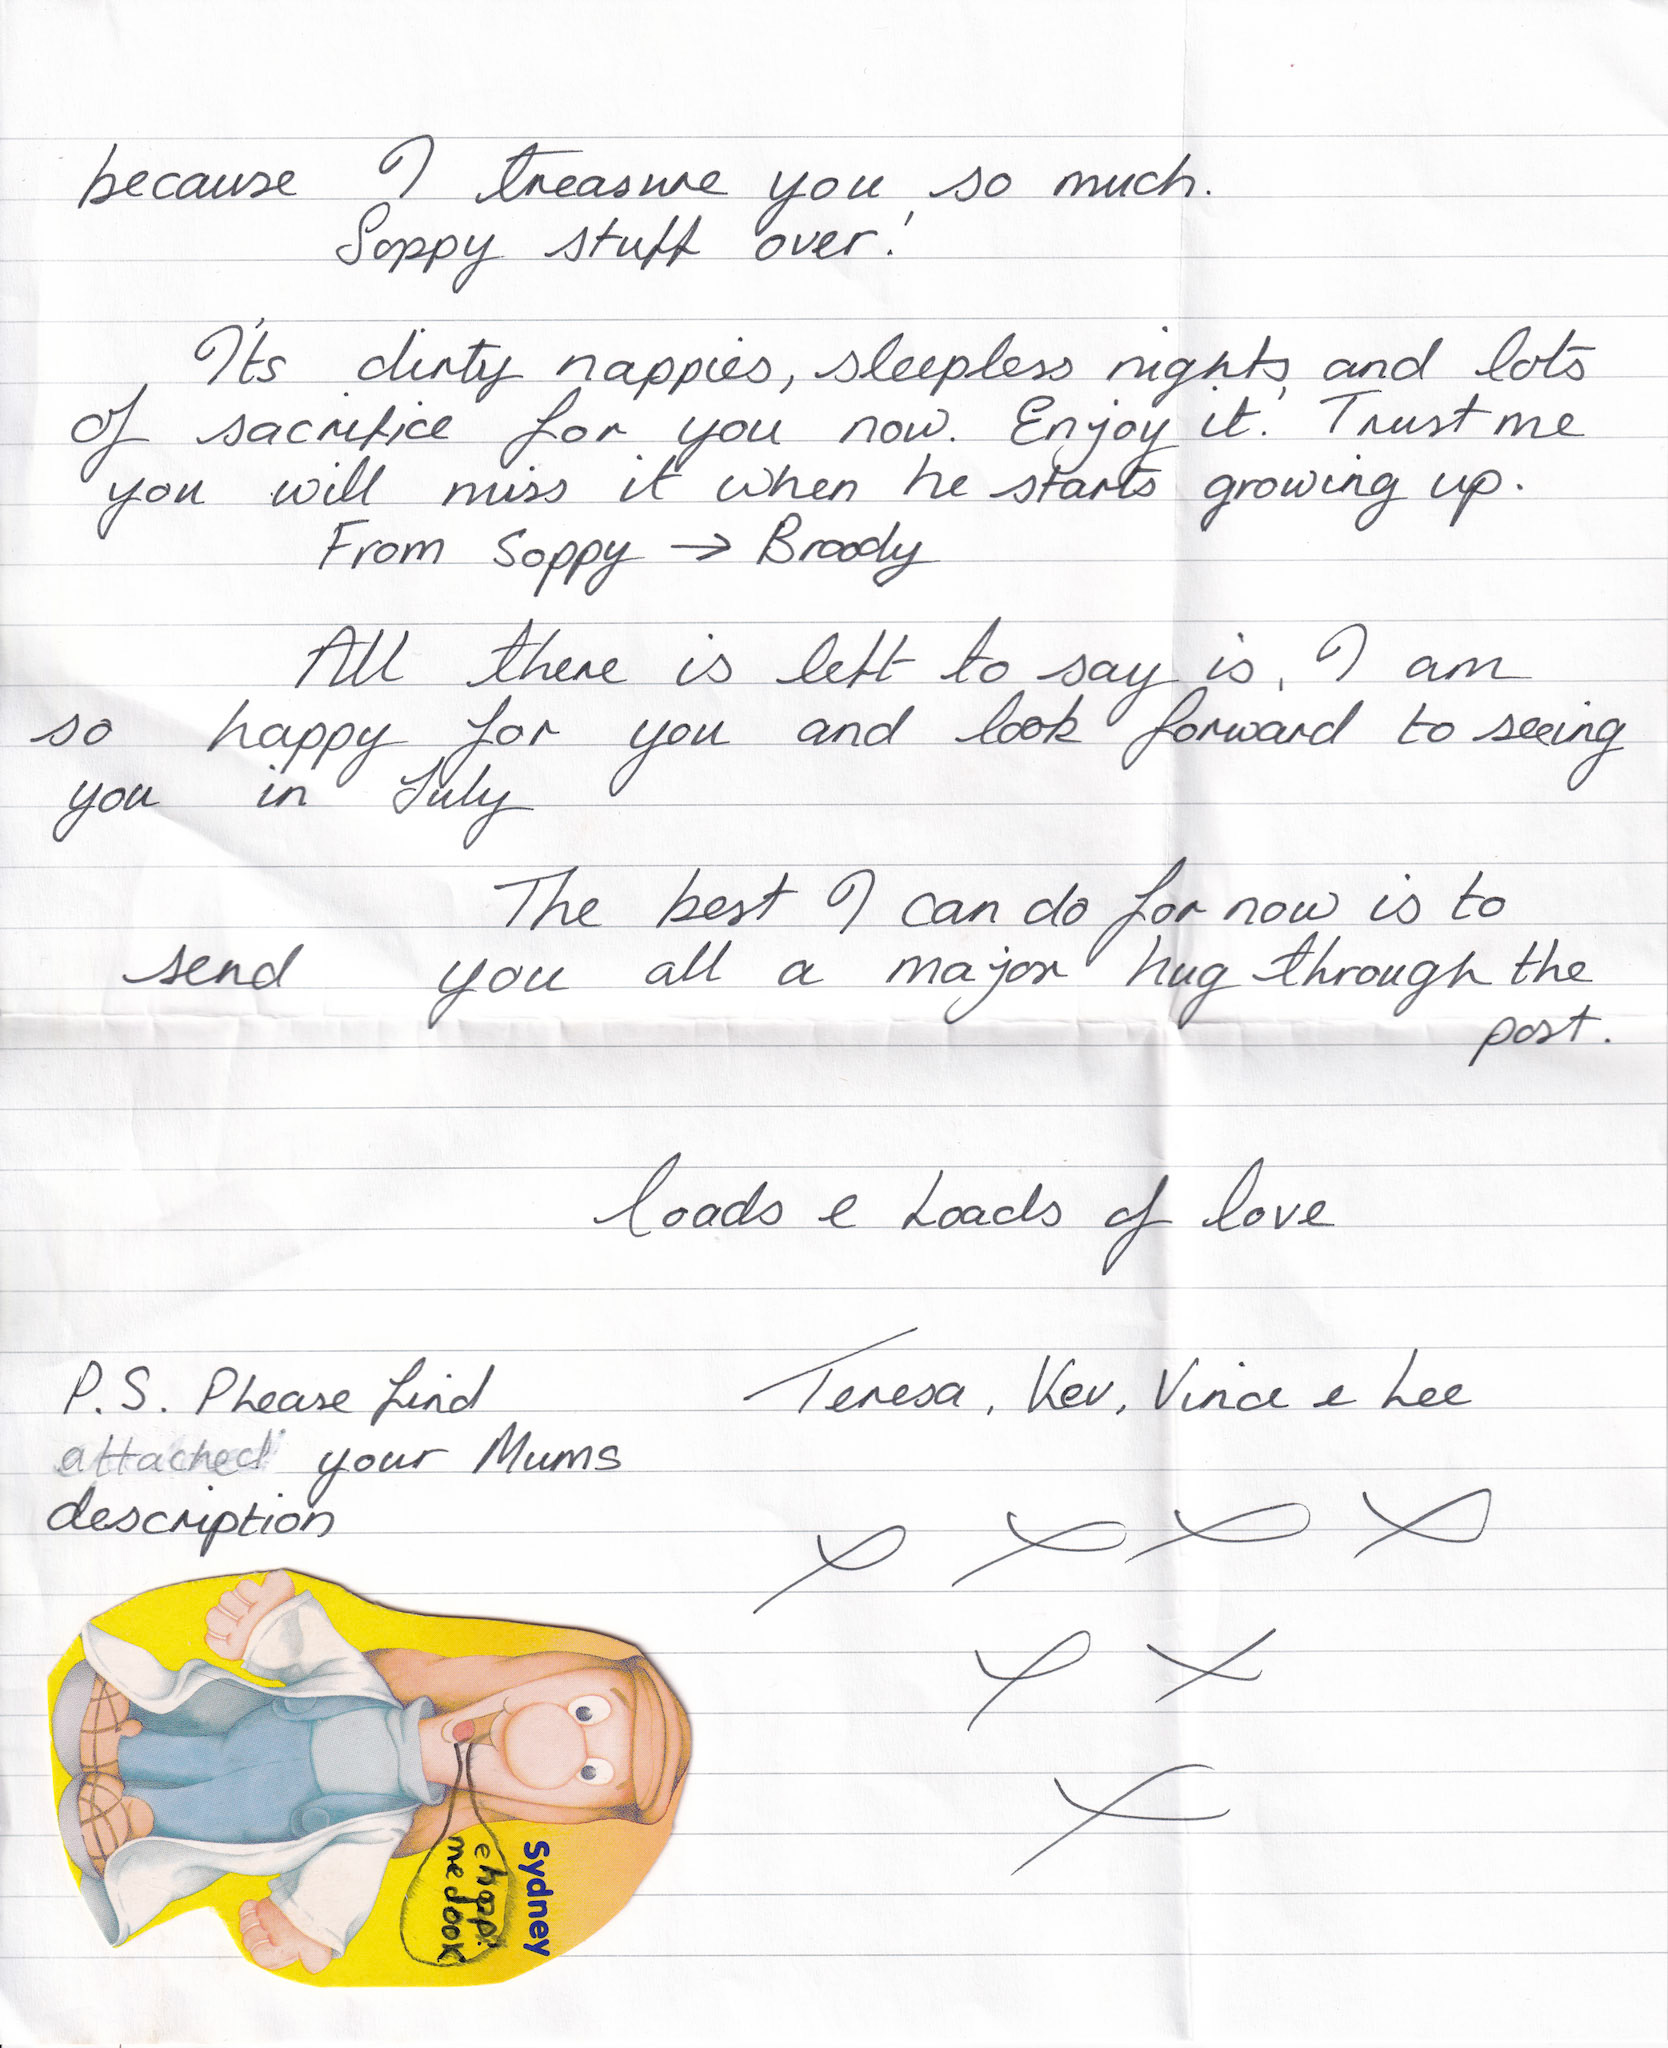 because I treasure you so much.
Soppy stuff over!
It's dirty nappies, sleepless nights and lots
of sacrifice for you now. Enjoy it! Trust me
you will miss it when he starts growing up.
From Soppy → Broody
All there is left to say is, I am
so happy for you and look forward to seeing
you in July
The best I can do for now is to
send you all a major hug through the
post.
loads e Loads of love
Teresa, Kev, Vince e Lee
P.S. Please find
attached your Mums
description
x x x x
x x
x
Sydney
me book